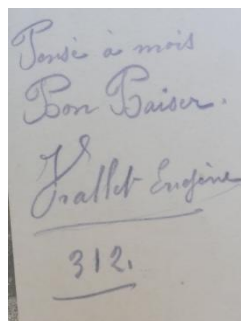 Pensé à mois
Bon Baiser.
Vrallet Eugène
312.